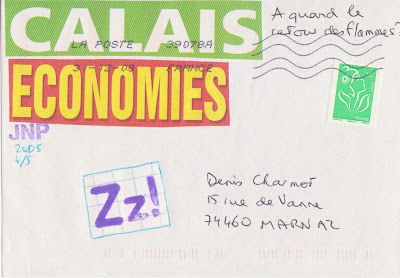 CALAIS
A quand le
LA POSTE 39078A
31-12-08 FRANCE
ECONOMIES
JNP
2008
4/5
Zz!
Denis Charmot
15 rue de Vanne
74460 MARNAZ